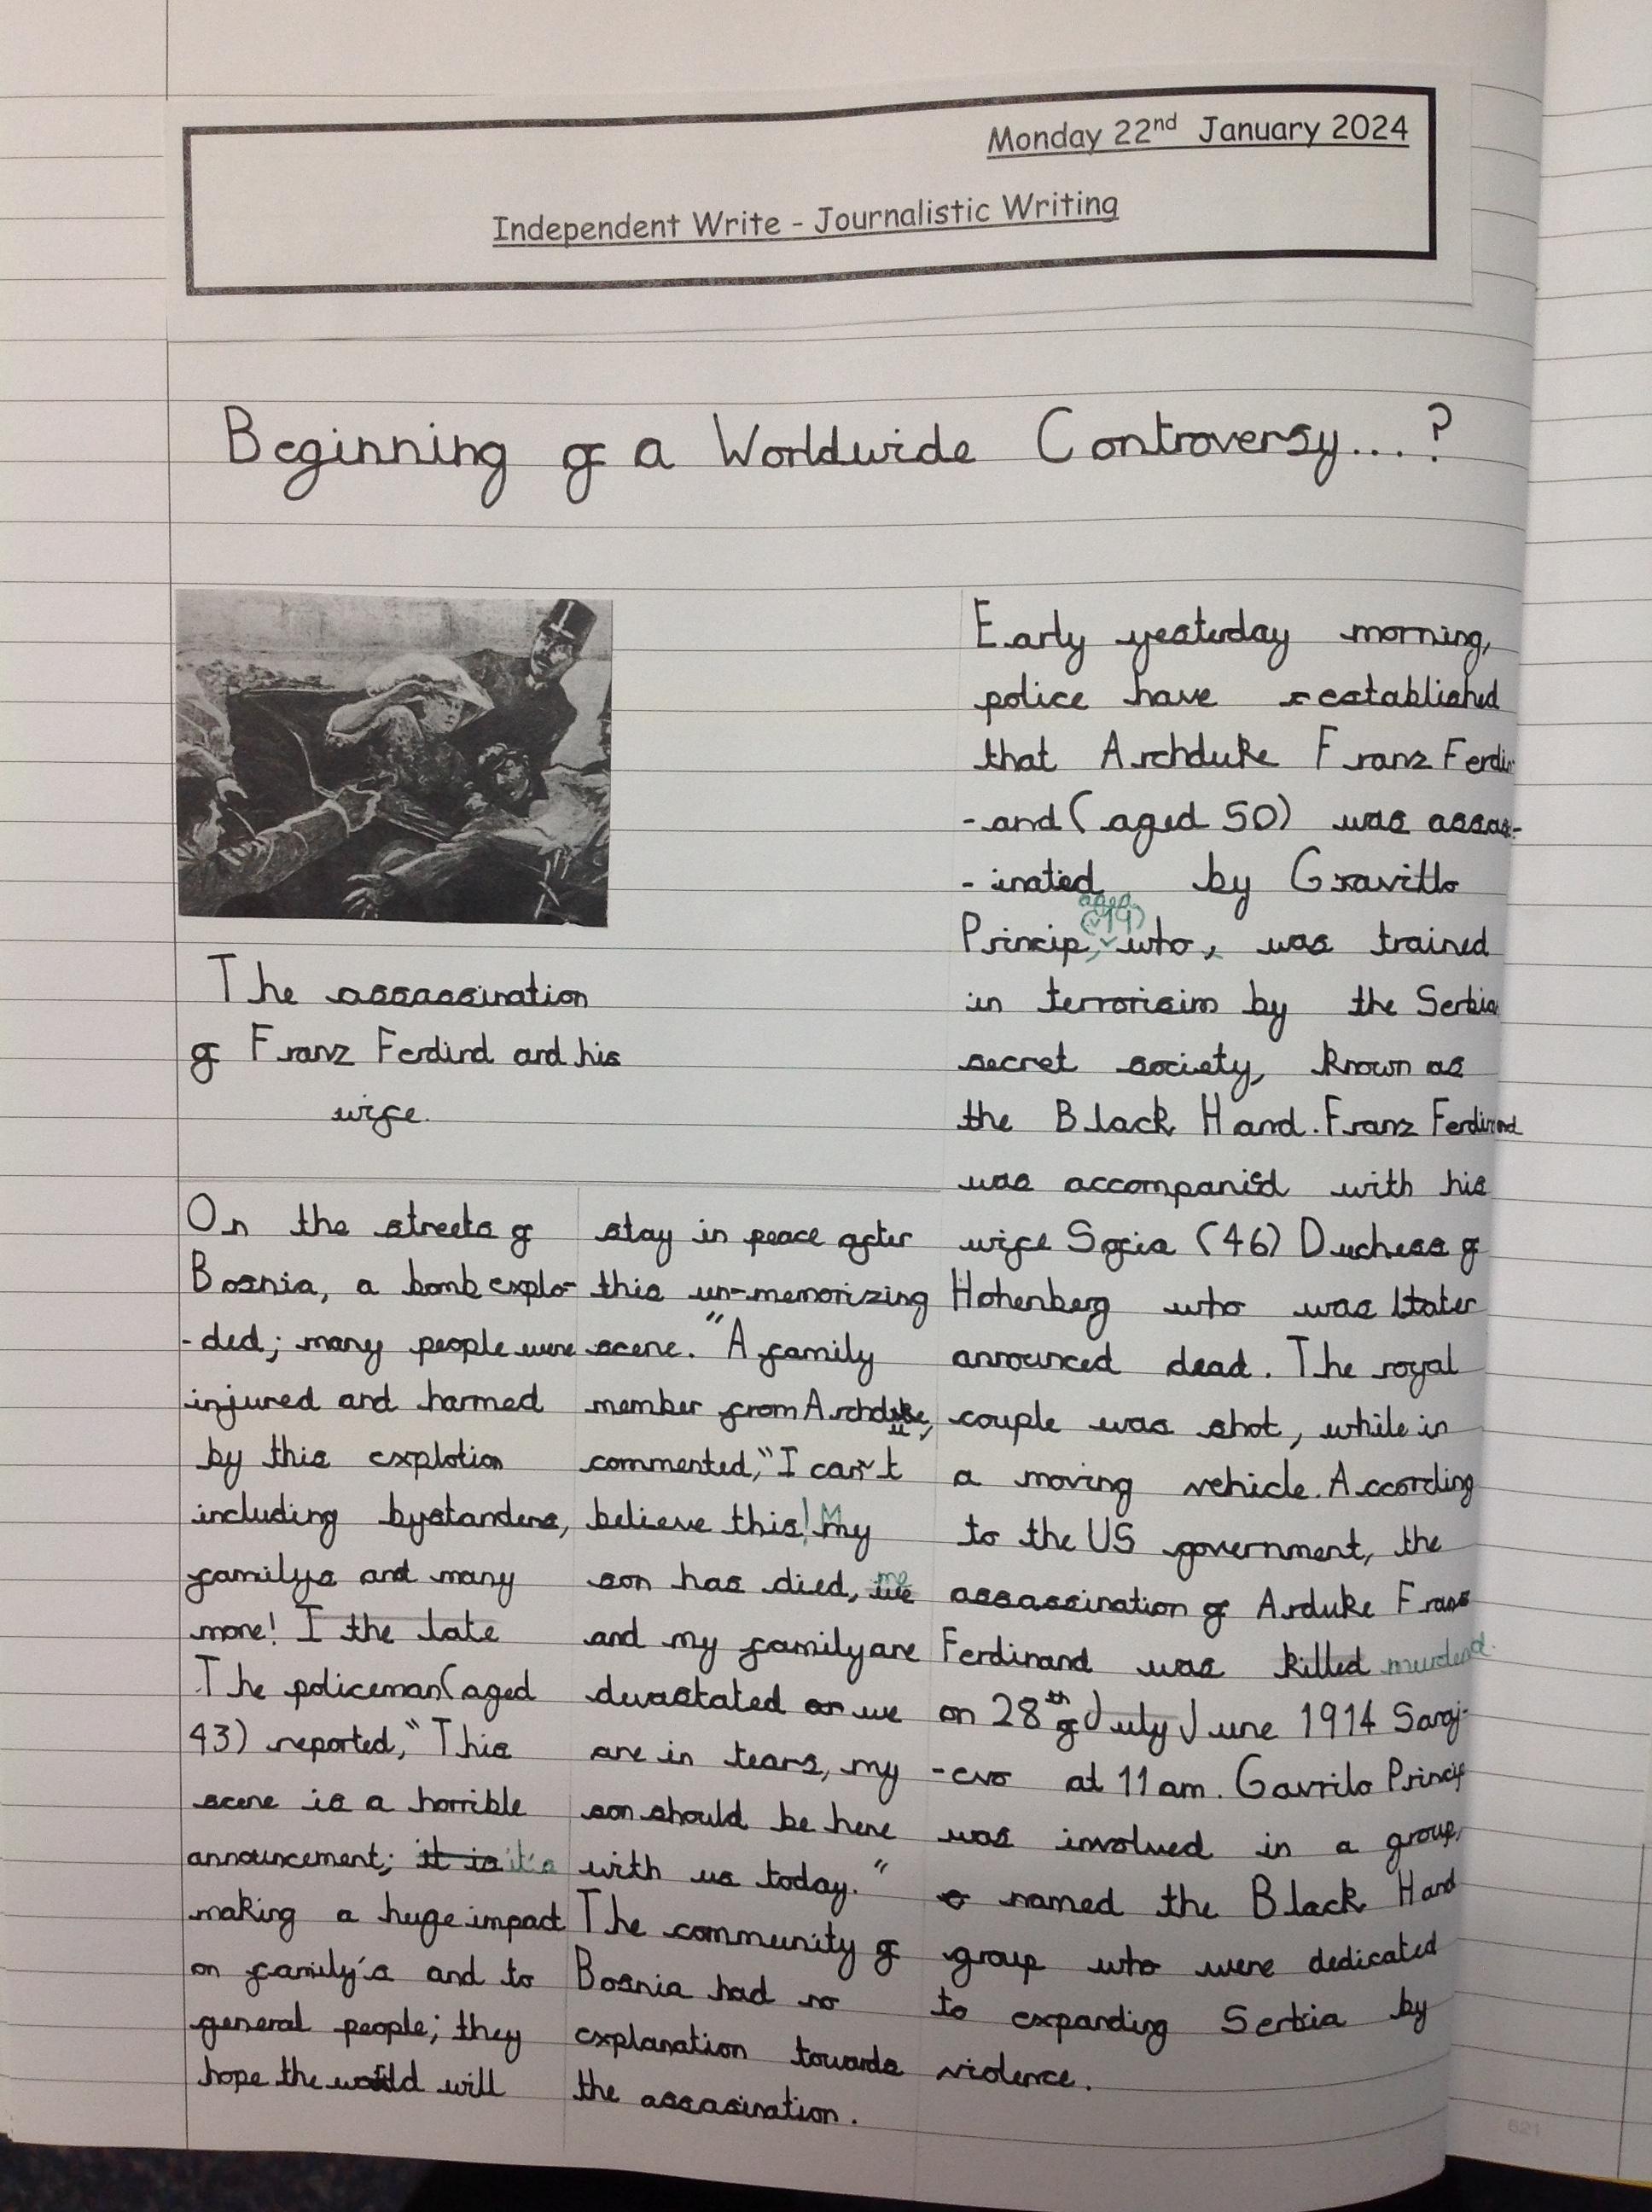 Monday 22nd January 2024
Independent Write - Journalistic Writing
Beginning of a Worldwide Controversy...?
The assassination
of Franz Ferdind and his
wife.
Early yesterday morning,
police have established
that Archduke Franz Ferdin
-and (aged 50) was assas-
-inated by Gravillo
Princip, (aged 19) who, was trained
in terrorisim by the Serbia
secret society, known as
the Black Hand. Franz Ferdinand
was accompanied with his
wife Sofia (46) Duchess of
Hohenberg who was later
announced dead. The royal
couple was shot, while in
a moving vehicle. According
to the US government, the
assassination of Arduke Frans
Ferdinand was killed murdered.
on 28th of July June 1914 Saraj-
-evo at 11am. Gavrilo Princip
was involved in a group,
named the Black Hand
group who were dedicated
to expanding Serbia by
violence.
On the streets of
Bosnia, a bomb explo-
-ded; many people were
injured and harmed
by this explotion
including bystanders,
familys and many
more! I the late
The policeman (aged
43) reported, "This
scene is a horrible
announcement; it is it's
making a huge impact
on family's and to
general people; they
hope the world will
stay in peace after
this un-memorizing
scene. "A family
member from Archduke,
commented, "I can't
believe this! My
son has died, me
and my family are
devastated we
are in tears, my
son should be here
with us today."
The community of
Bosnia had no
explanation towards
the assasination.